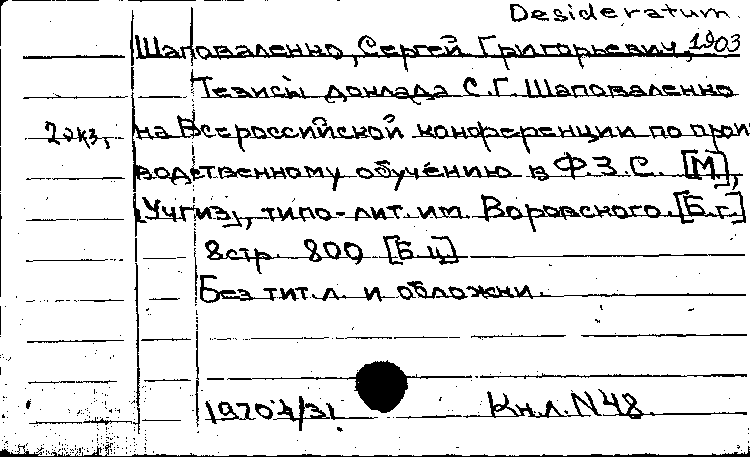 Desideratum.
Шаповаленко, Сергей Григорьевич, 1903
Тезисы доклада С.Г. Шаповаленко
2 экз, на Всероссийской конференции по произ
водственному обучению в Ф.З.С. [М.],
[Учгиз], типо-лит. им. Воровского. [Б.г.]
8 стр. 800 [Б.ц]
Без тит.л. и обложки.
Кн.л. N48.